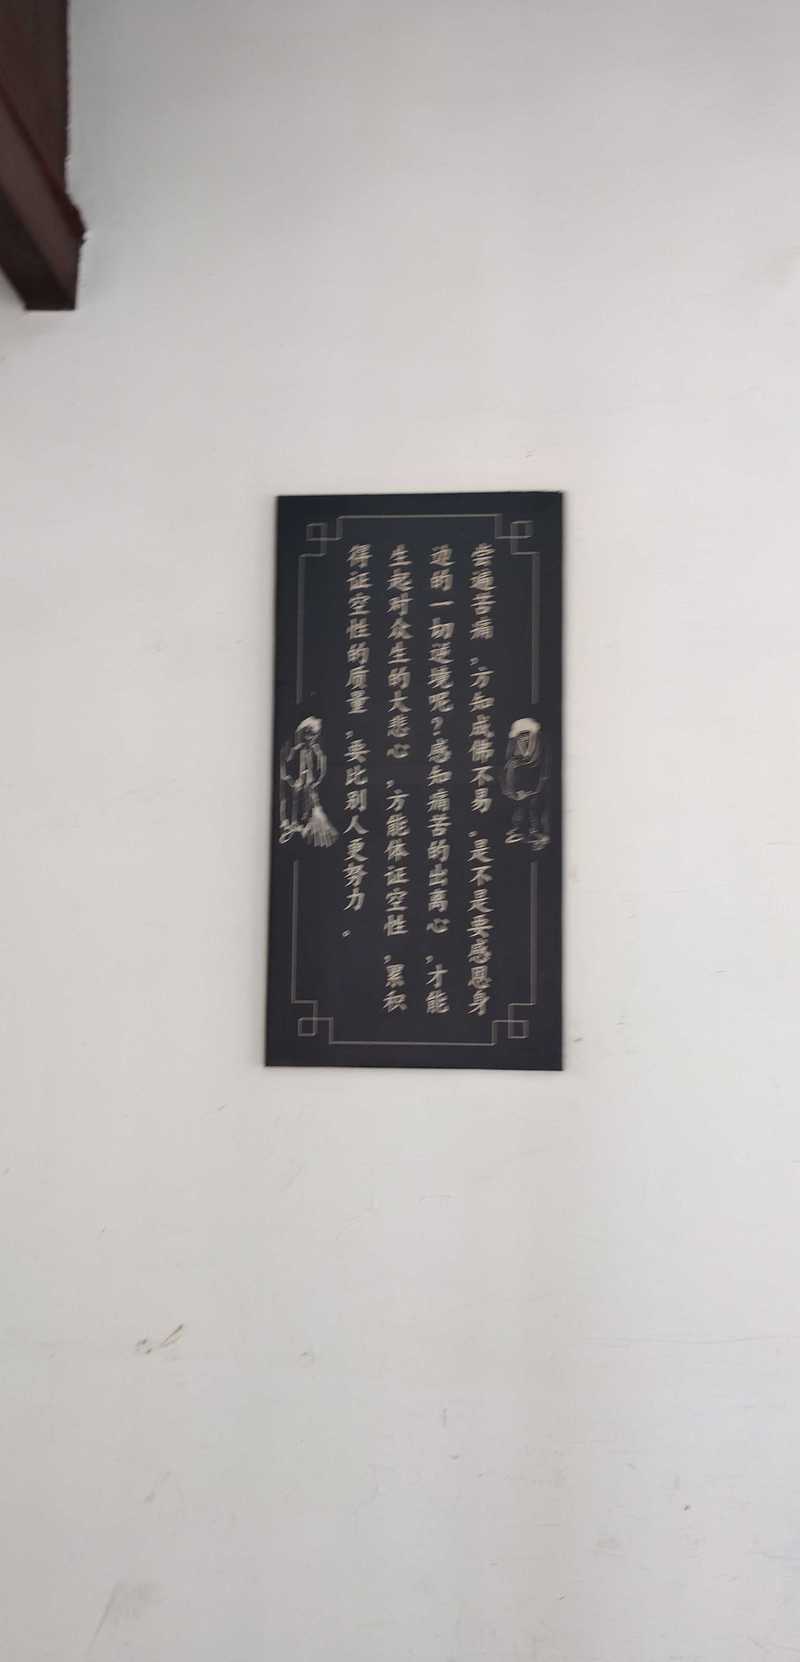 尝遍苦痛，方知成佛不易。是不是要感恩身
边的一切逆境呢？感知痛苦的出离心，才能
生起对众生的大悲心，方能体证空性，累积
得证空性的质量，要比别人更努力。